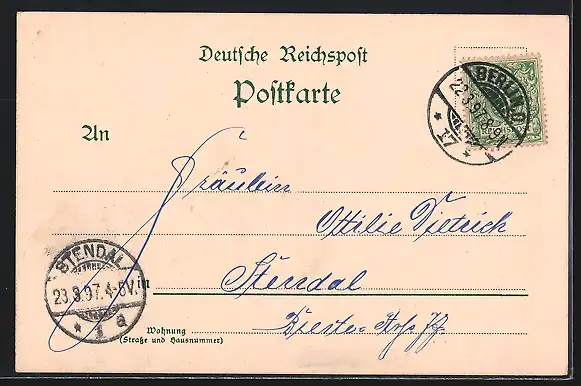 Deutsche Reichspost
Postkarte
BERLIN,O
22.3.97.8-9N.
* 17 *
An
Fräulein
Ottilie Dietrich
STENDAL
23.3.97.4-5V.
* 1 a
in Stendal
Wohnung
(Straße und Hausnummer)